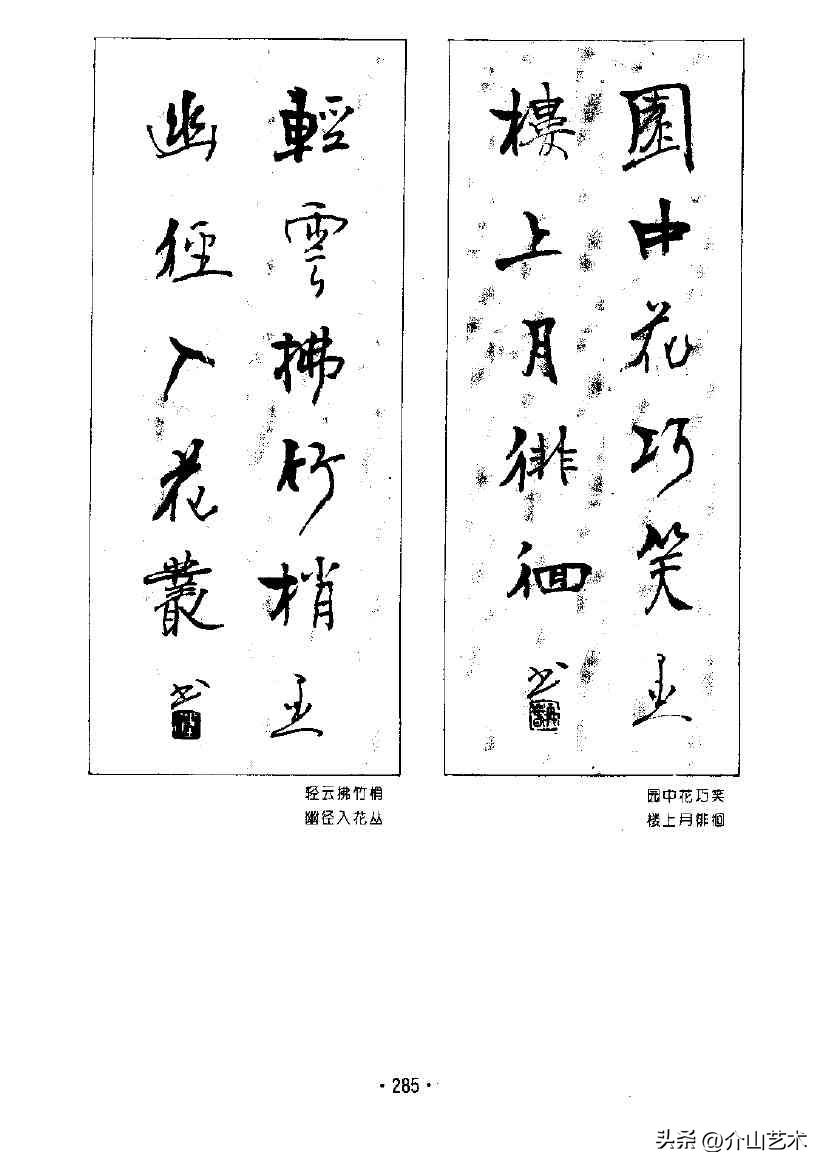 園中花巧笑
樓上月徘徊 书
輕雲拂竹梢
幽徑入花叢 书
园中花巧笑
楼上月徘徊
轻云拂竹梢
幽径入花丛
·285·
头条 @介山艺术